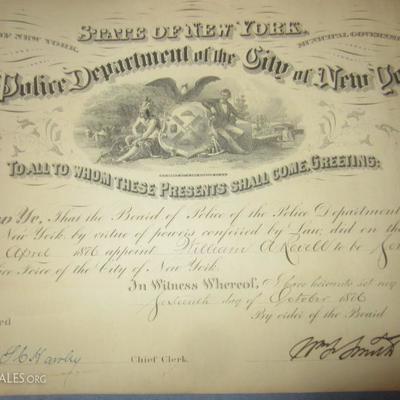 STATE OF NEW YORK.
OF NEW YORK.
MUNICIPAL GOVERNME
Police Department of the City of New Yo
TO ALL TO WHOM THESE PRESENTS SHALL COME, GREETING:
Ye, That the Board of Police of the Police Department
New York, by virtue of powers conferred by Law, did on the
April 1876 appoint William A Revell to be
Force of the City of New York.
In Witness Whereof, I have hereunto set my
Sixteenth day of October 1876
By order of the Board
Chief Clerk.
Wm. F. Smith
ALES.ORG